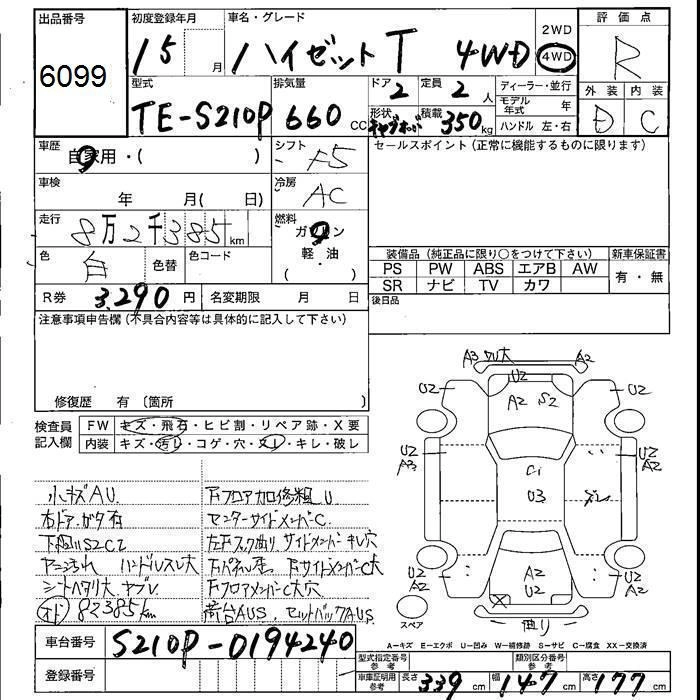 出品番号 初度登録年月 車名・グレード 2WD 評価点
6099 15 月 ハイゼットT 4WD 4WD R
型式 排気量 ドア 定員 ディーラー・並行 外装 内装
TE-S210P 660 CC 2 2 人 モデル年式 年 D C
形状 積載 350 kg ハンドル 左・右
車歴 自家用・( ) シフト F5 セールスポイント(正常に機能するものに限ります)
車検 年 月( 日) 冷房 AC
走行 8万2千385 km 燃料 ガソリン
色 白 色替 色コード ( 軽・油
装備品(純正品に限り○をつけて下さい) 新車保証書
PS PW ABS エアB AW 有・無
SR ナビ TV カワ
R券 3,290 円 名変期限 月 日 後日品
注意事項申告欄(不具合内容等は具体的に記入して下さい)
修復歴 有(箇所
検査員記入欄 FW キズ・飛石・ヒビ割・リペア跡・X要
内装 キズ・汚れ・コゲ・穴・スレ・キレ・破レ
A3 A2
U2 U2 U2
A2 S2
U2 A3 C1 U2 A2
U3
U2 A2 A2 U2 U2 A2
スペア 曲り
小キズAU
右ドアガタ有
下廻りS2C2
ヤニ汚れ ハンドルスレ大
シートヘタリ大 ヤブレ
82385km
センターサイドメンバーC
A-キズ E-エクボ U-凹み W-補修跡 S-サビ C-腐食 XX-交換済
車台番号 S210P-0194240
登録番号
型式指定番号参考 類別区分番号参考
車庫証明用参考 長さ 339 cm 幅 147 cm 高さ 177 cm